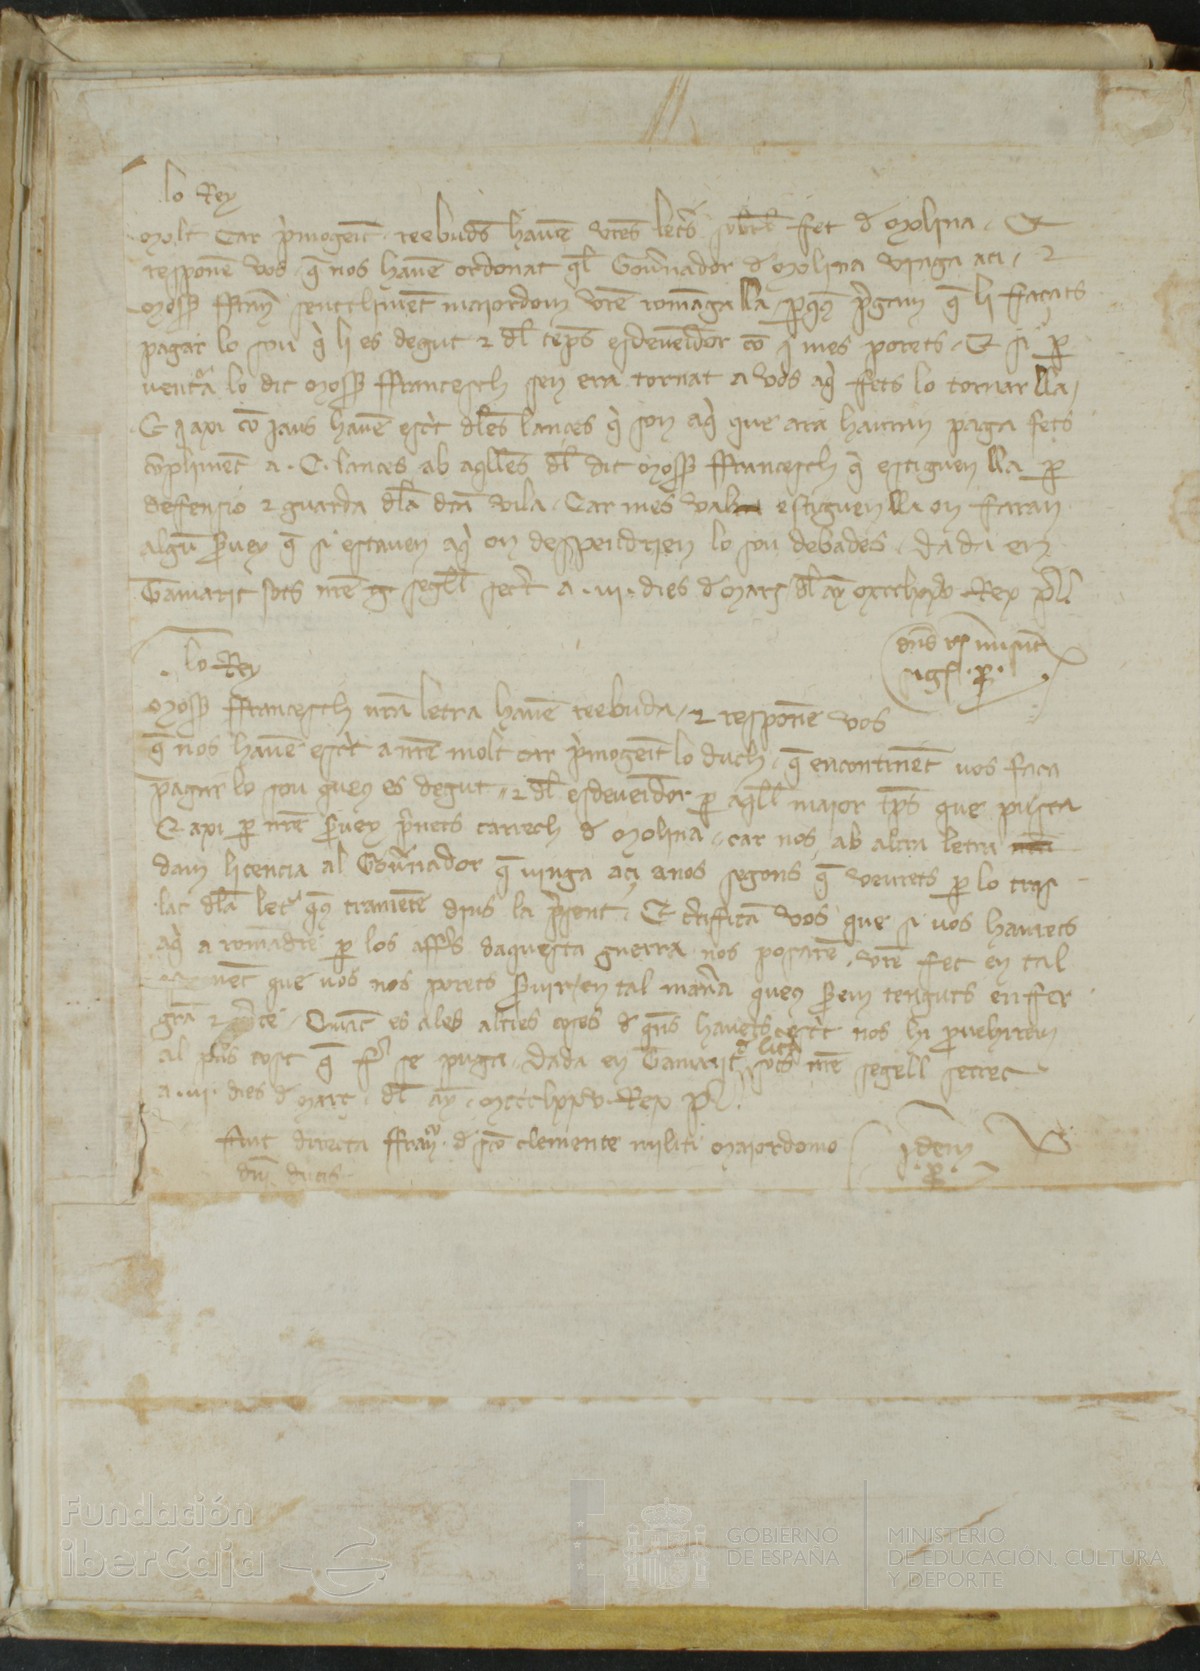 lo Rey
Molt car p̄mogenit reebudes havem vr̄es letr̄s sobrel fet d Molina. Et
responem vos q̄ nos havem ordonat q̄l Gov̄nador d Molina vinga aci, ⁊
Moss̄ Ffran̄ sentcliment maiordom vr̄e romanga lla p̄gam q̄ li façats
pagar lo sou q̄ li es degut ⁊ dl̄ temps esdevenidor co mes porets. Et si p̄
ventura lo dit Moss̄ Ffrancesch sen era tornat a vos aq̄ fets lo tornar lla,
Et axi co jaus havem escr̄it dl̄es lances q̄ son aq̄ que ara hauran paga fets
compliment a .C. lances ab aq̄lles dl̄ dit Moss̄ Ffrancesch q̄ estiguen lla p̄
deffensio ⁊ guarda dl̄a dita vila. Car mes val estiguen lla on faran
algun s̄vey q̄ si estaven aq̄ on despendrien lo sou debades. Dada en
Tamarit sots nr̄e segell secret a .vi. dies d Març dl̄ any Mccclxxv. Rex P̄.
dn̄s rex
.p̄.
lo Rey
Moss̄ Ffrancesch vr̄a letra havem reebuda, ⁊ responem vos
q̄ nos havem escr̄it a nr̄e molt car p̄mogenit lo duch, q̄ encontinent vos faça
pagar lo sou queus es degut, ⁊ dl̄ esdevenidor p̄ aq̄ll maior temps que puscha
Et axi p̄ nr̄e s̄vey p̄nets carrech d Molina, car nos ab altra letra
dam licencia al Gov̄nador q̄ vinga aci a nos segons q̄ veurets p̄ lo tras
lat dl̄a letr̄a trametem dins la p̄sent. Et c̄tificam vos que si vos havets
aq̄ a romandre p̄ los aff̄s daquesta guerra nos posarem vr̄e fet en tal
que vos nos porets s̄vir en tal man̄a queus s̄em tenguts en ffer
gr̄a ⁊ m̄ce. Quant es a les altres coses d havets escr̄it nos hi p̄vehirem
al pus tost q̄ fer se puga. Dada en Tamarit d litera sots nr̄e segell secret
a .vi. dies d Març dl̄ any Mccclxxv. Rex P̄.
fuit directa Ffran̄ d sc̄o clemente militi maiordomo
dn̄i ducis
Idem
.p̄.
Fundación
iberCaja
GOBIERNO
DE ESPAÑA
MINISTERIO
DE EDUCACIÓN, CULTURA
Y DEPORTE